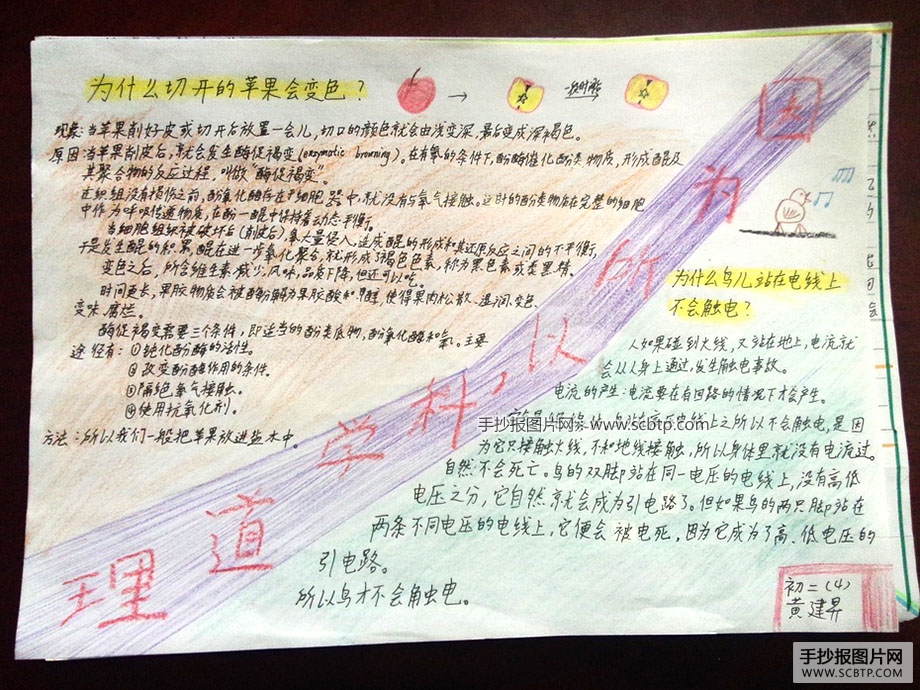 为什么切开的苹果会变色?
一段时间后
现象:当苹果削好皮或切开后放置一会儿,切口的颜色就会由浅变深,最后变成深褐色。
原因:当苹果削皮后,就会发生酶促褐变(enzymatic browning)。在有氧的条件下,酚酶催化酚类物质,形成醌及
其聚合物的反应过程,叫做“酶促褐变”。
在组织没有损伤之前,酚氧化酶存在于细胞器中,就没有与氧气接触。这时的酚类物质在完整的细胞
中作为呼吸传递物质,在酚一醌中保持着动态平衡。
当细胞组织被破坏后(削皮后)氧大量侵入,造成醌的形成和其还原反应之间的不平衡,
于是发生醌的积累,醌在进一步氧化聚合,就形成了褐色色素,称为黑色素或类黑精。
变色之后,所含维生素减少,风味、品质下降,但还可以吃。
时间更长,果胶物质会被酶分解为果胶酸和甲醇,使得果肉松散、湿润、变色、
变味、腐烂。
酶促褐变需要三个条件,即适当的酚类底物,酚氧化酶和氧。主要
途径有:①钝化酚酶的活性。
②改变酚酶作用的条件。
③隔绝氧气接触。
④使用抗氧化剂。
方法:所以我们一般把苹果放进盐水中。
理道学科,以所为因
为什么鸟儿站在电线上
不会触电?
人如果碰到火线,又站在地上,电流就
会从人身上通过,发生触电事故。
电流的产生:电流要在有回路的情况下才会产生。
鸟站在高压电线上之所以不会触电,是因
为它只接触火线,不和地线接触,所以身体里就没有电流过。
自然不会死亡。鸟的双脚站在同一电压的电线上,没有高低
电压之分,它自然就会成为引电路了。但如果鸟的两只脚站在
两条不同电压的电线上,它便会被电死,因为它成为了高、低电压的
引电路。
所以鸟才不会触电。
初二(4)
黄建昇
手抄报图片网 www.scbtp.com
手抄报图片网
WWW.SCBTP.COM